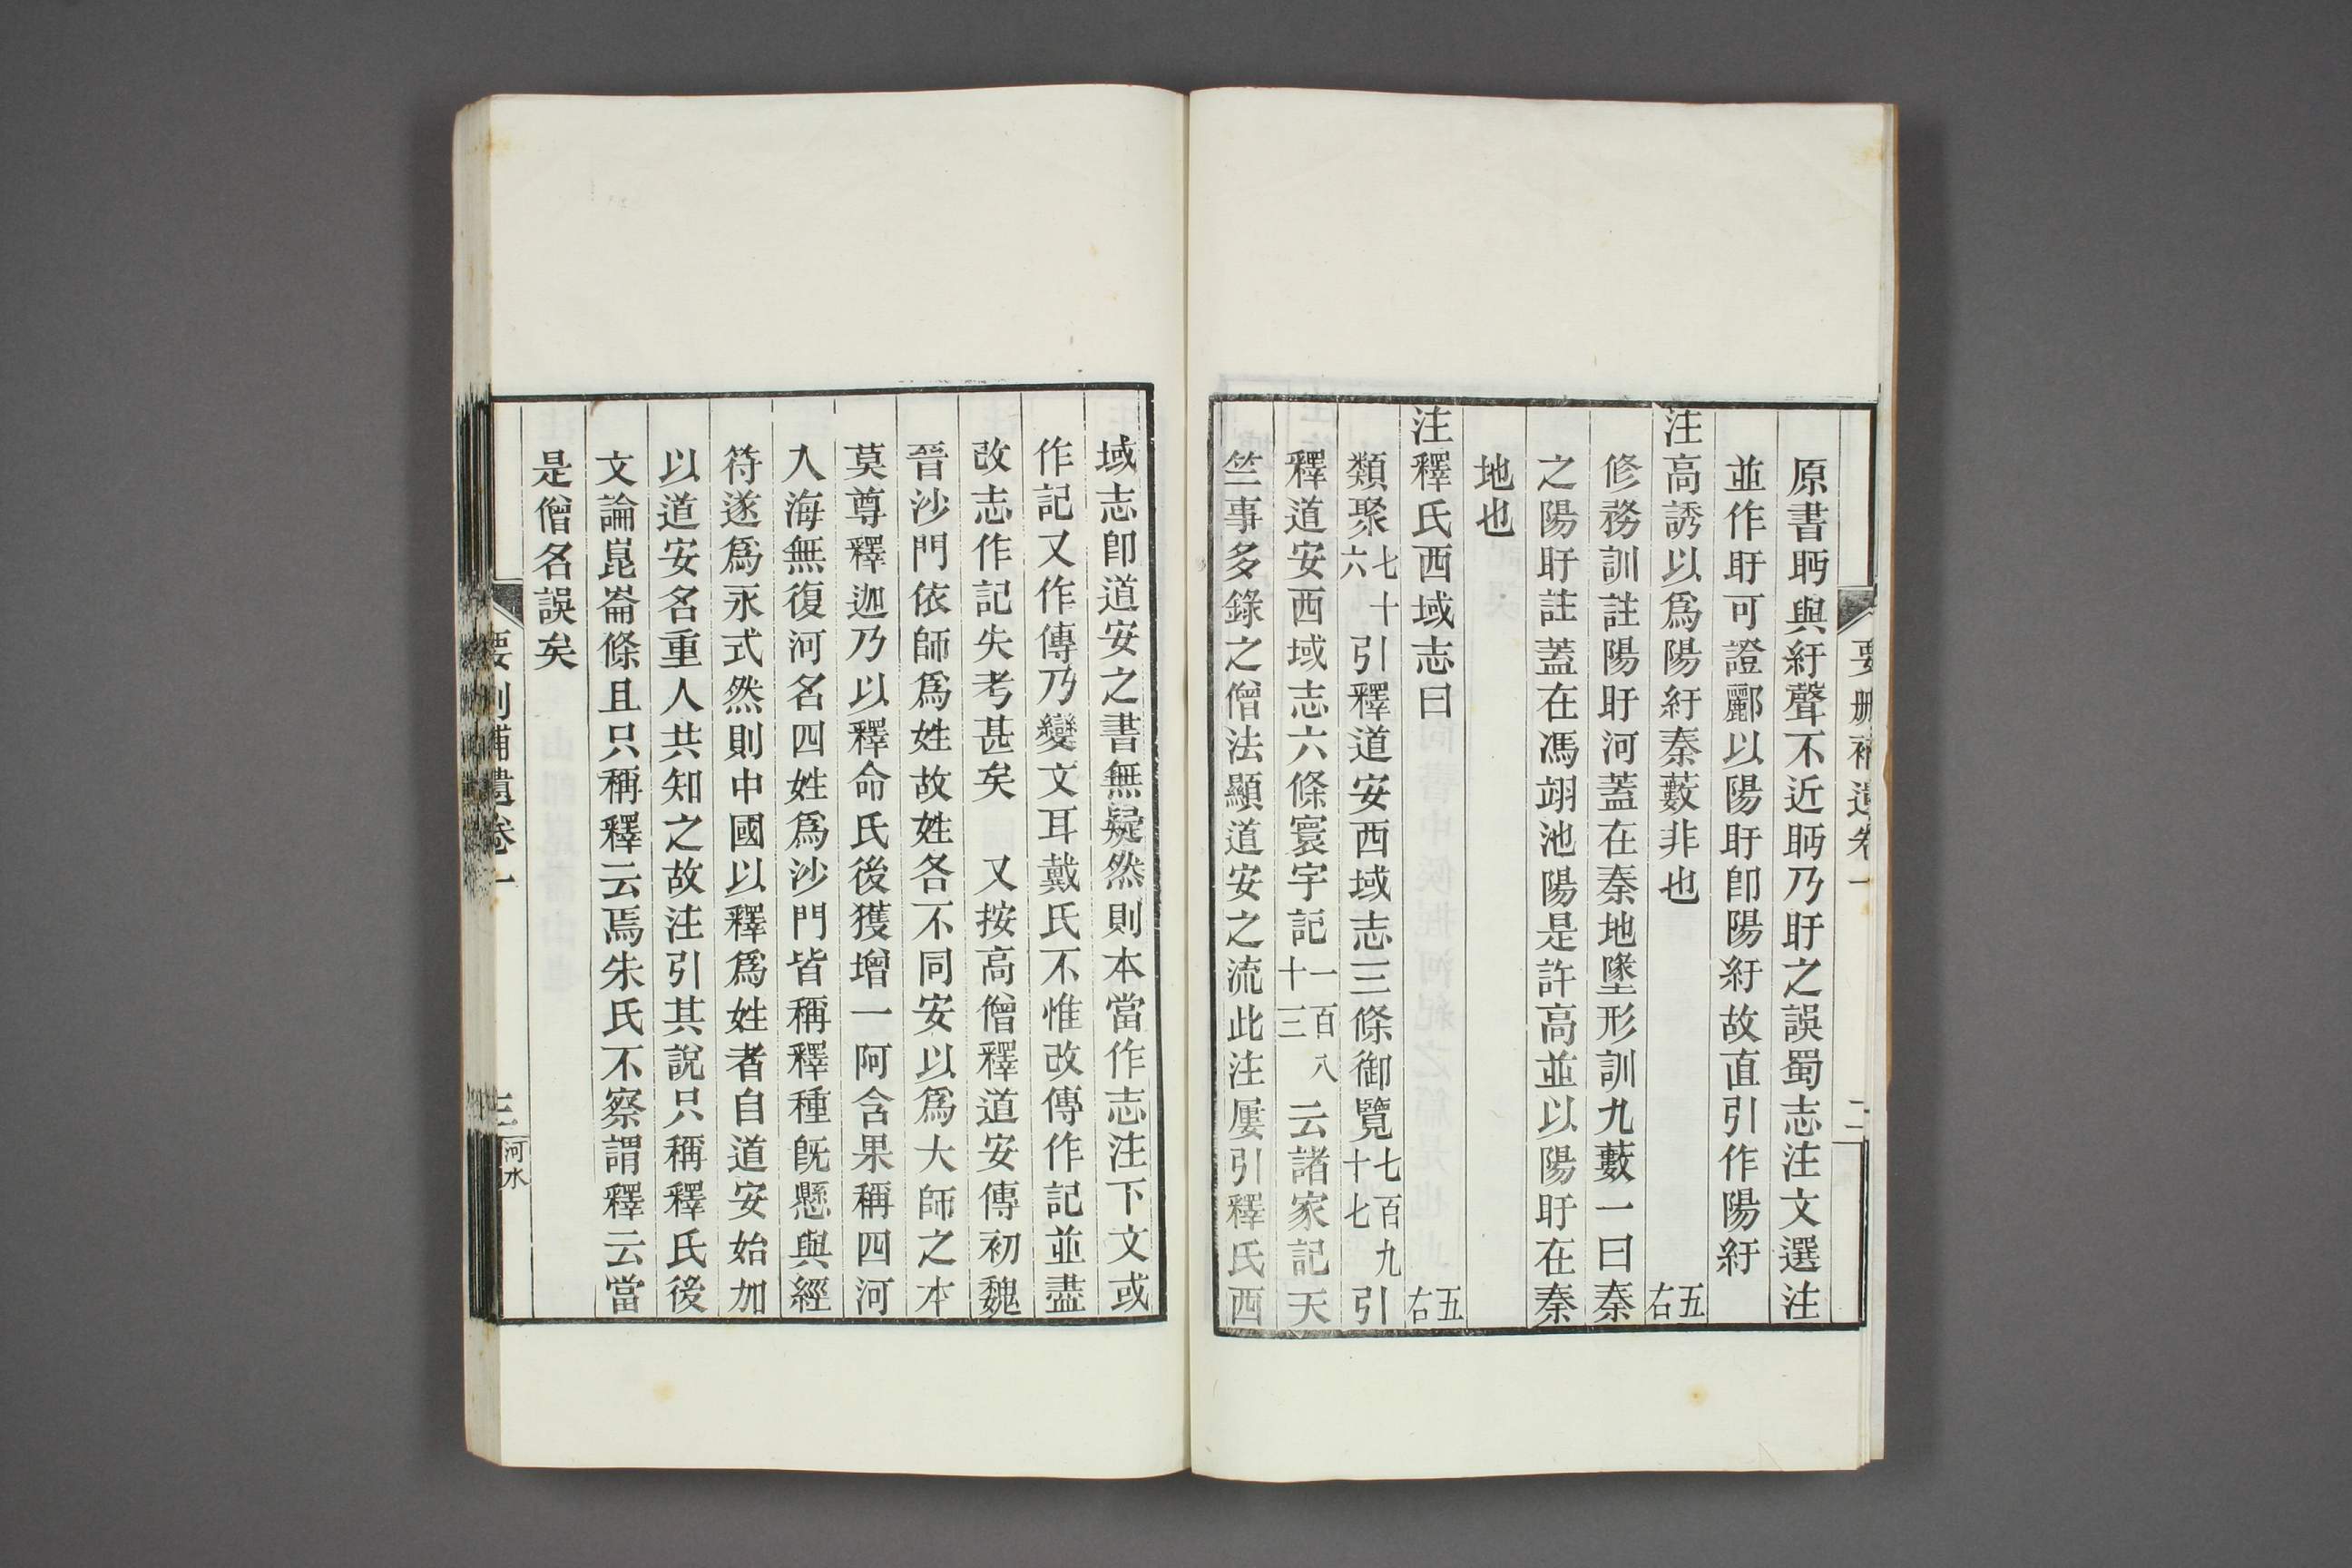 要刪補遺卷一
二
原書眄與紆聲不近眄乃盱之誤蜀志注文選注
並作盱可證酈以陽盱卽陽紆故直引作陽紆
注高誘以爲陽紆秦藪非也 五右
修務訓註陽盱河蓋在秦地墬形訓九藪一曰秦
之陽盱註蓋在馮翊池陽是許高並以陽盱在秦
地也
注釋氏西域志曰 五右
類聚七十六引釋道安西域志三條御覽七百九十七引
釋道安西域志六條寰宇記一百八十三云諸家記天
竺事多錄之僧法顯道安之流此注屢引釋氏西
域志卽道安之書無疑然則本當作志注下文或
作記又作傳乃變文耳戴氏不惟改傳作記並盡
改志作記失考甚矣 又按高僧釋道安傳初魏
晉沙門依師爲姓故姓各不同安以爲大師之本
莫尊釋迦乃以釋命氏後獲增一阿含果稱四河
入海無復河名四姓爲沙門皆稱釋種旣懸與經
符遂爲永式然則中國以釋爲姓者自道安始加
以道安名重人共知之故注引其說只稱釋氏後
文論崑崙條且只稱釋云焉朱氏不察謂釋云當
是僧名誤矣
要刪補遺卷一
三
河水